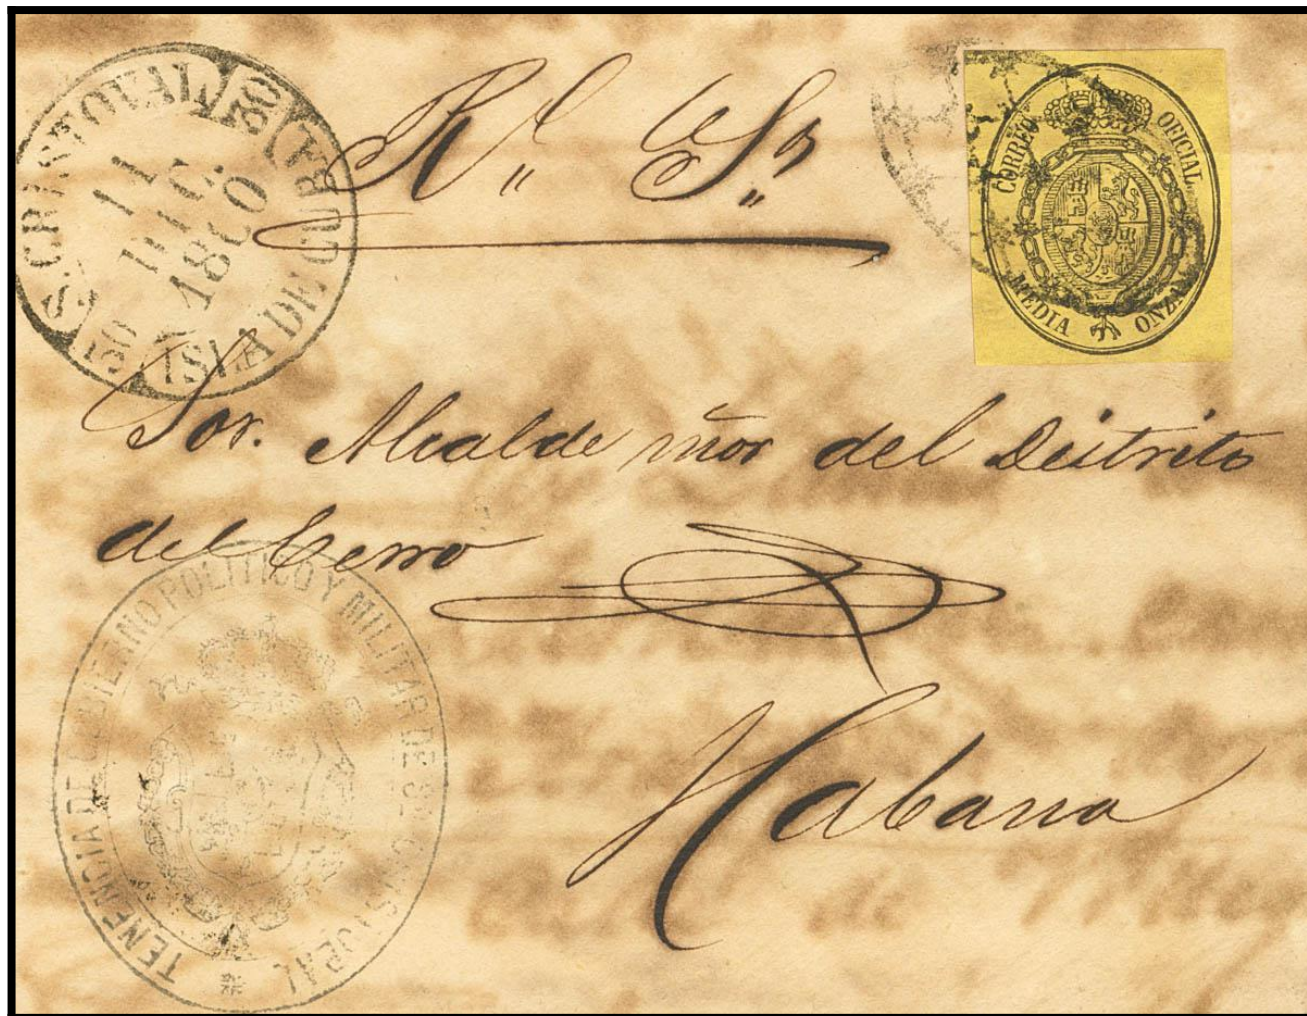 S. CRISTOVAL (30)
11
DIC.
1860
30 ISLA DE CUBA
Rl. So
CORREO OFICIAL
MEDIA ONZA
Sor. Alcalde mor del Distrito
del Cerro
Habana
TENENCIA DE GOBIERNO POLITICO Y MILITAR DE SN. CRISTOBAL